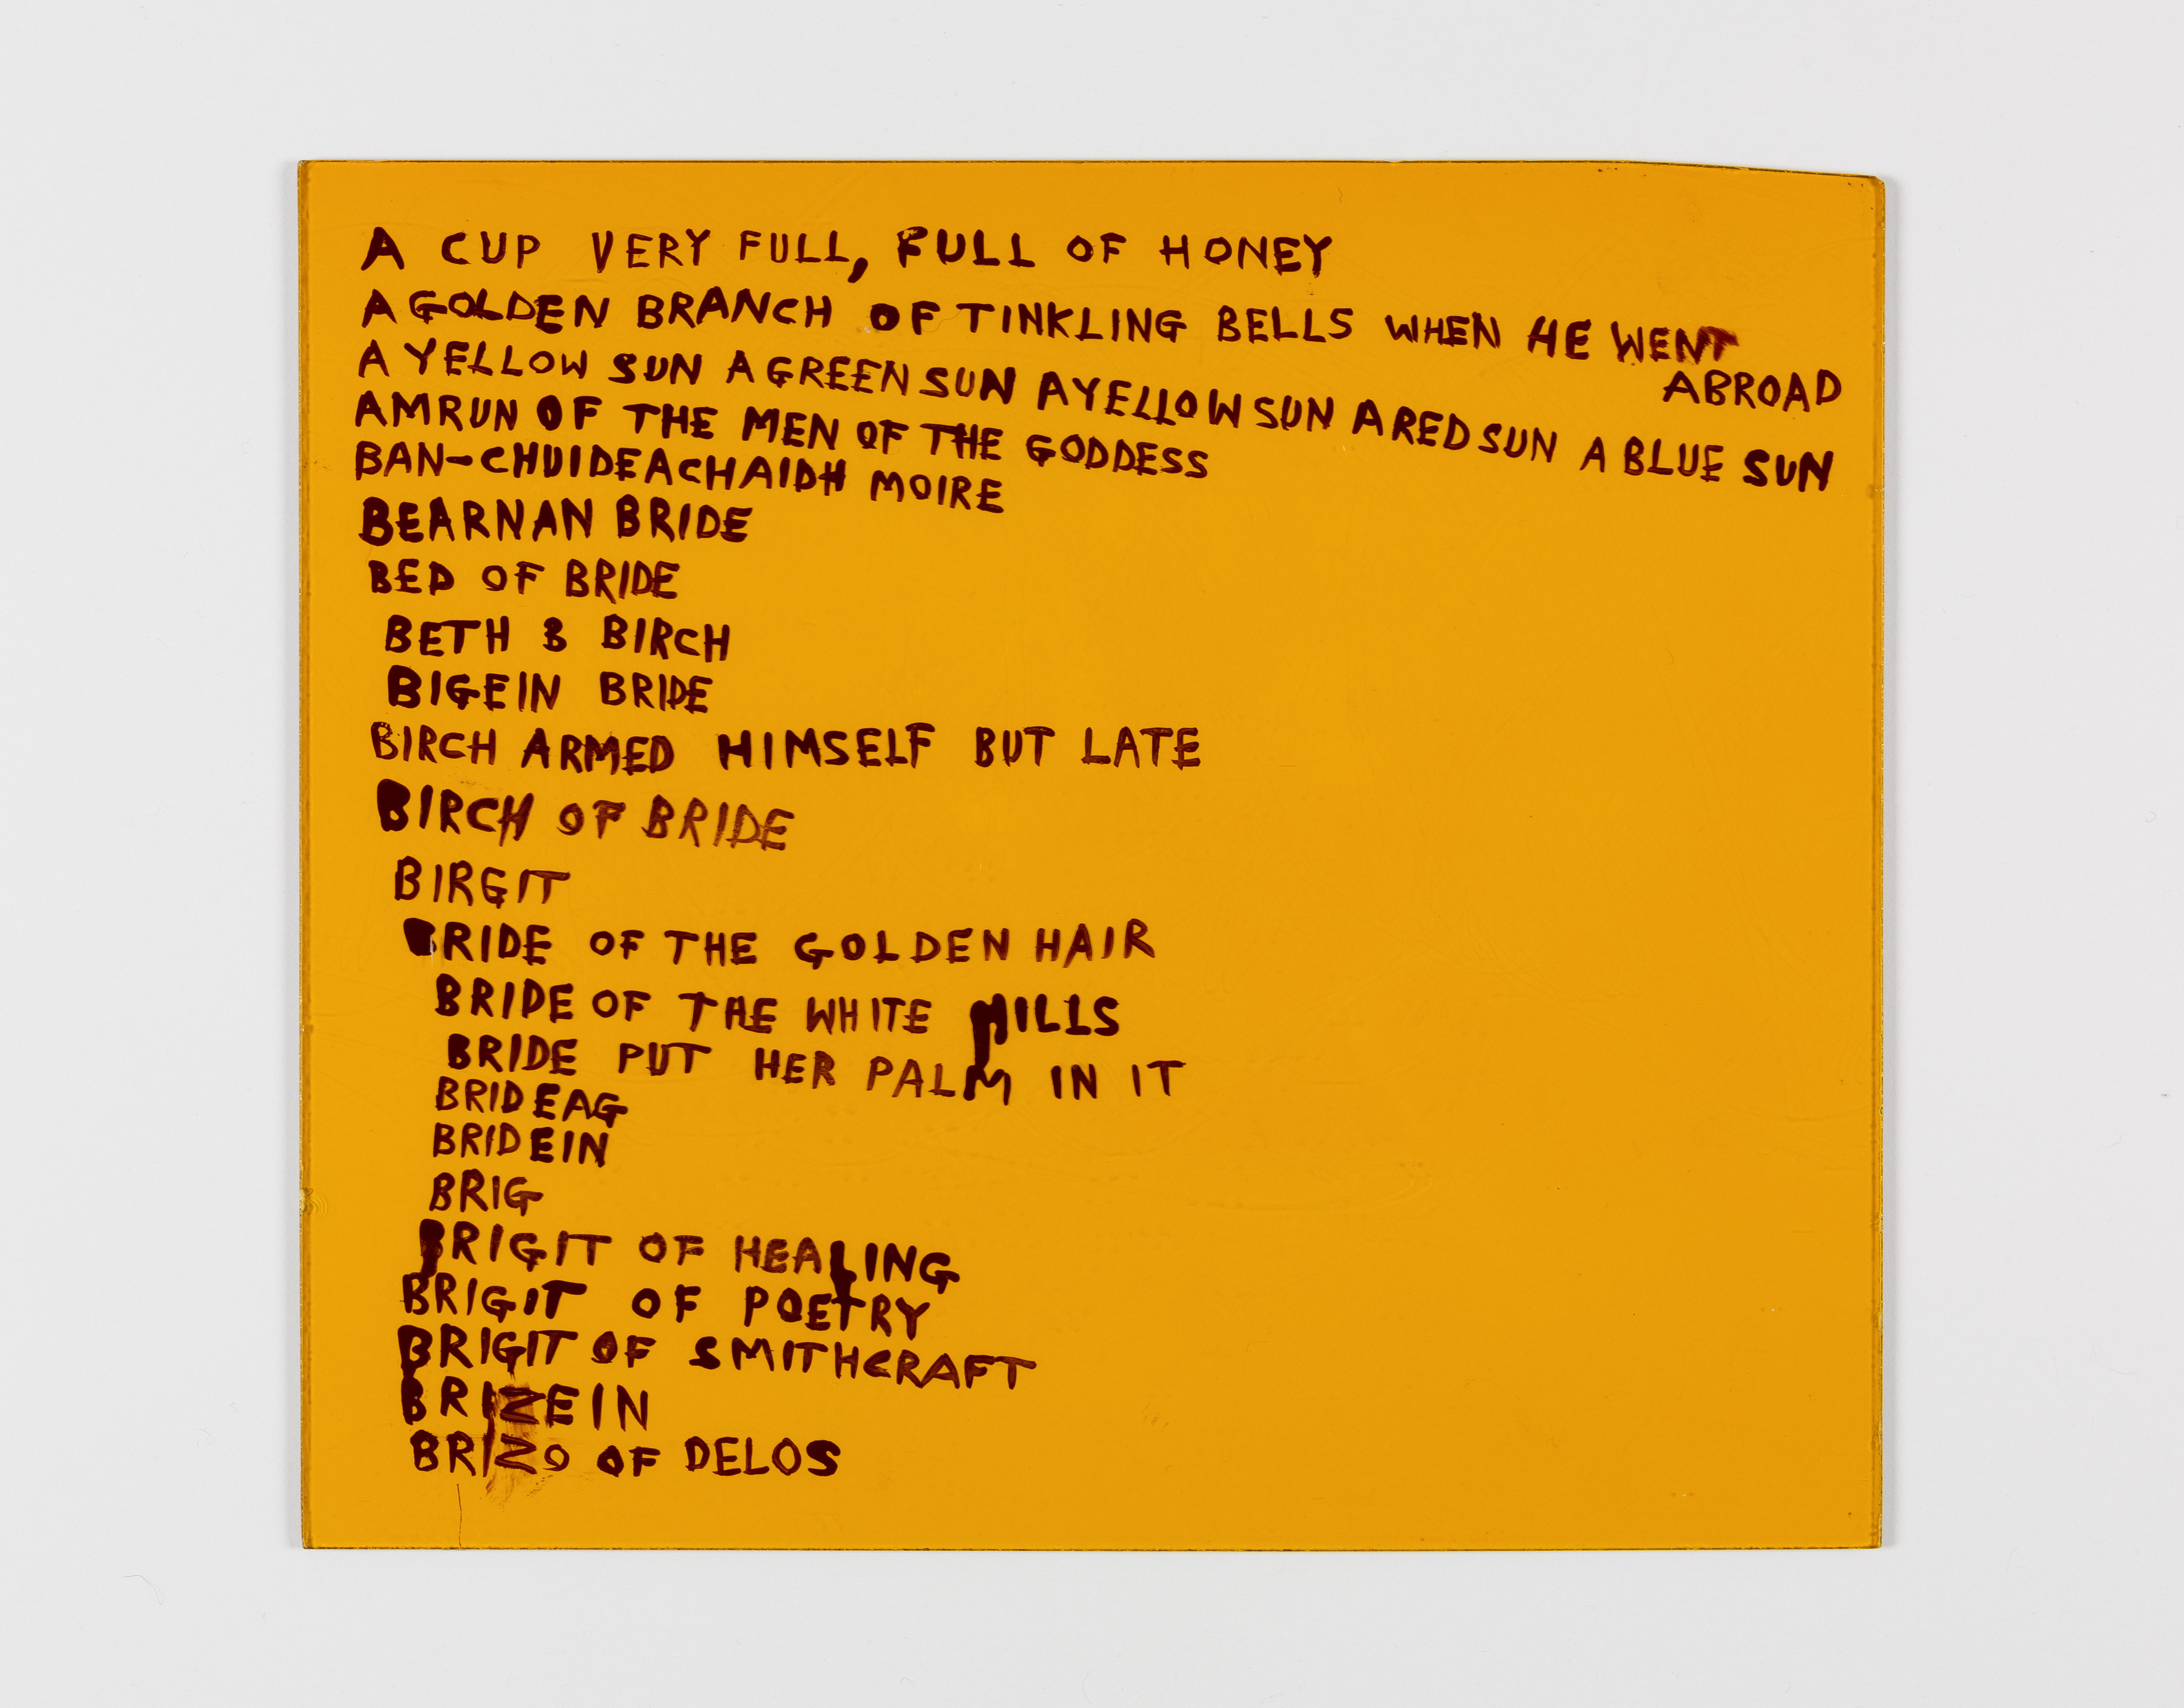 A CUP VERY FULL, FULL OF HONEY
A GOLDEN BRANCH OF TINKLING BELLS WHEN HE WENT
ABROAD
A YELLOW SUN A GREEN SUN A YELLOW SUN A RED SUN A BLUE SUN
AMRUN OF THE MEN OF THE GODDESS
BAN-CHUIDEACHAIDH MOIRE
BEARNAN BRIDE
BED OF BRIDE
BETH B BIRCH
BIGEIN BRIDE
BIRCH ARMED HIMSELF BUT LATE
BIRCH OF BRIDE
BIRGIT
BRIDE OF THE GOLDEN HAIR
BRIDE OF THE WHITE HILLS
BRIDE PUT HER PALM IN IT
BRIDEAG
BRIDEIN
BRIG
BRIGIT OF HEALING
BRIGIT OF POETRY
BRIGIT OF SMITHCRAFT
BRIZEIN
BRIZO OF DELOS